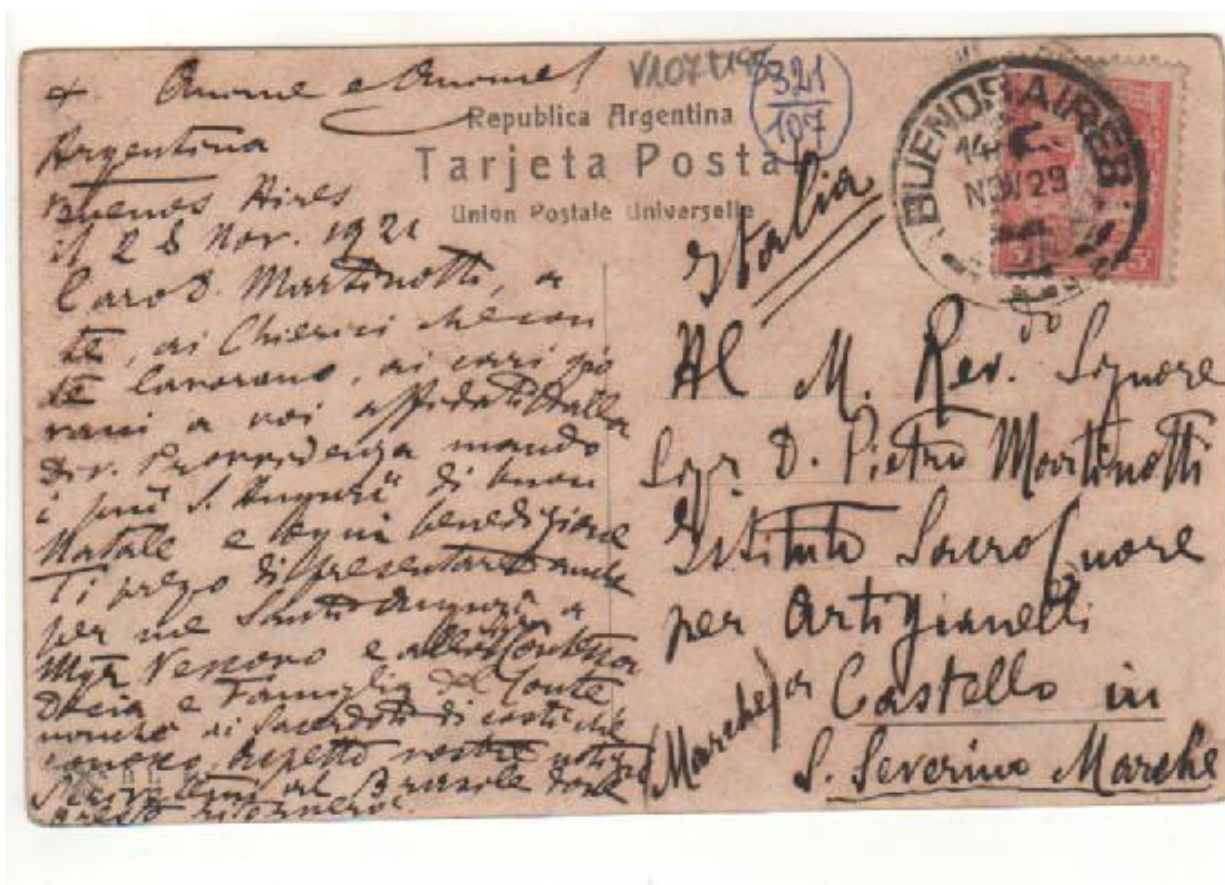 + Anime e Anime!
V107T195
8321
107
Republica Argentina
Tarjeta Postal
Union Postale Universelle
BUENOS AIRES
14
NOV 29
5c
Argentina
Buenos Aires
il 28 Nov. 1921
Caro D. Martinotti, a
te, ai Chierici che con
te lavorano, ai cari gio
vani a voi affidati dalla
Div. Provvidenza mando
i più S. Auguri di buon
Natale e ogni benedizione
Ti prego di presentare anche
per me Santi Auguri a
Mgr Vescovo e alla Contessa
e Famiglia del Conte
nonché ai Sacerdoti di costì che
conosco. Aspetto vostre notizie
Scrivetemi al Brasile dove
presto ritornerò.
Italia
Al M. Rev. Signore
Sigr. D. Pietro Martinotti
Istituto Sacro Cuore
per Artigianelli
(Marche) a Castello in
S. Severino Marche